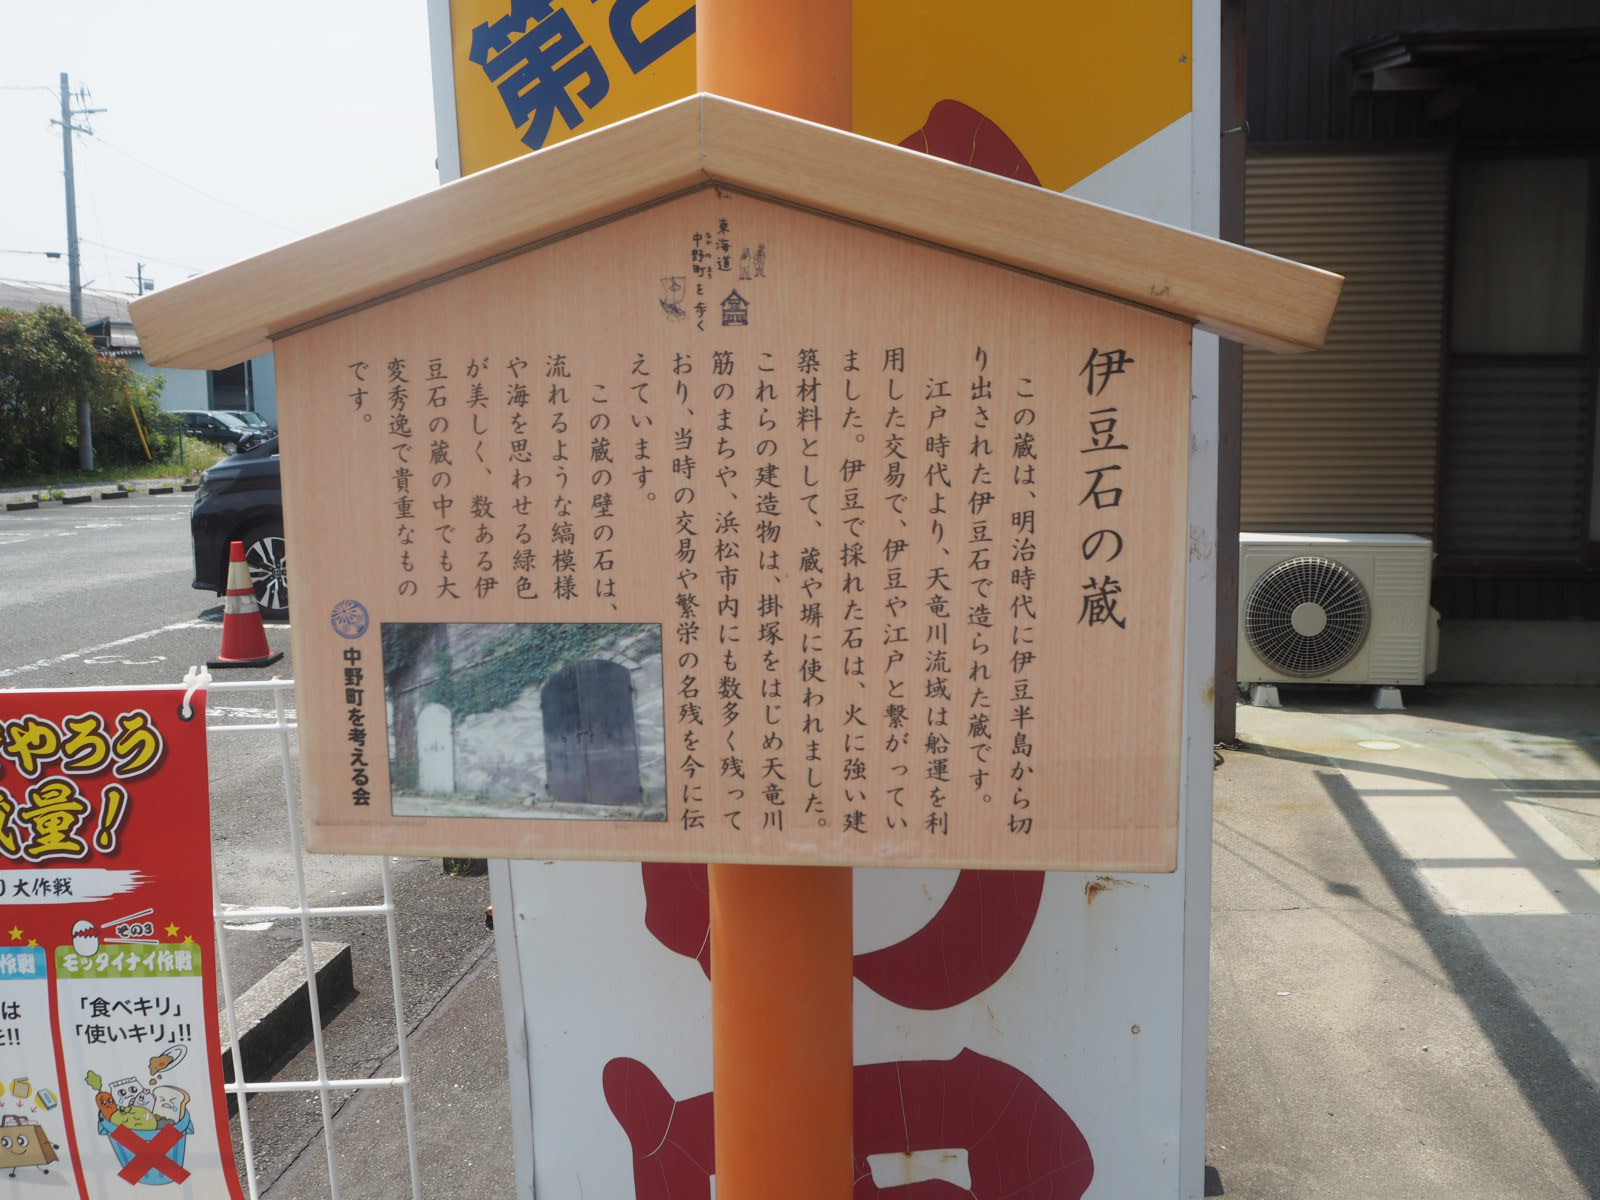 第2
東海道
中野町を歩く
なかのまち
伊豆石の蔵
この蔵は、明治時代に伊豆半島から切
り出された伊豆石で造られた蔵です。
江戸時代より、天竜川流域は船運を利
用した交易で、伊豆や江戸と繋がってい
ました。伊豆で採れた石は、火に強い建
築材料として、蔵や塀に使われました。
これらの建造物は、掛塚をはじめ天竜川
筋のまちや、浜松市内にも数多く残って
おり、当時の交易や繁栄の名残を今に伝
えています。
この蔵の壁の石は、
流れるような縞模様
や海を思わせる緑色
が美しく、数ある伊
豆石の蔵の中でも大
変秀逸で貴重なもの
です。
中野町を考える会
やろう
量!
大作戦
その3
作戦
モッタイナイ作戦
は
!!
「食べキリ」
「使いキリ」!!